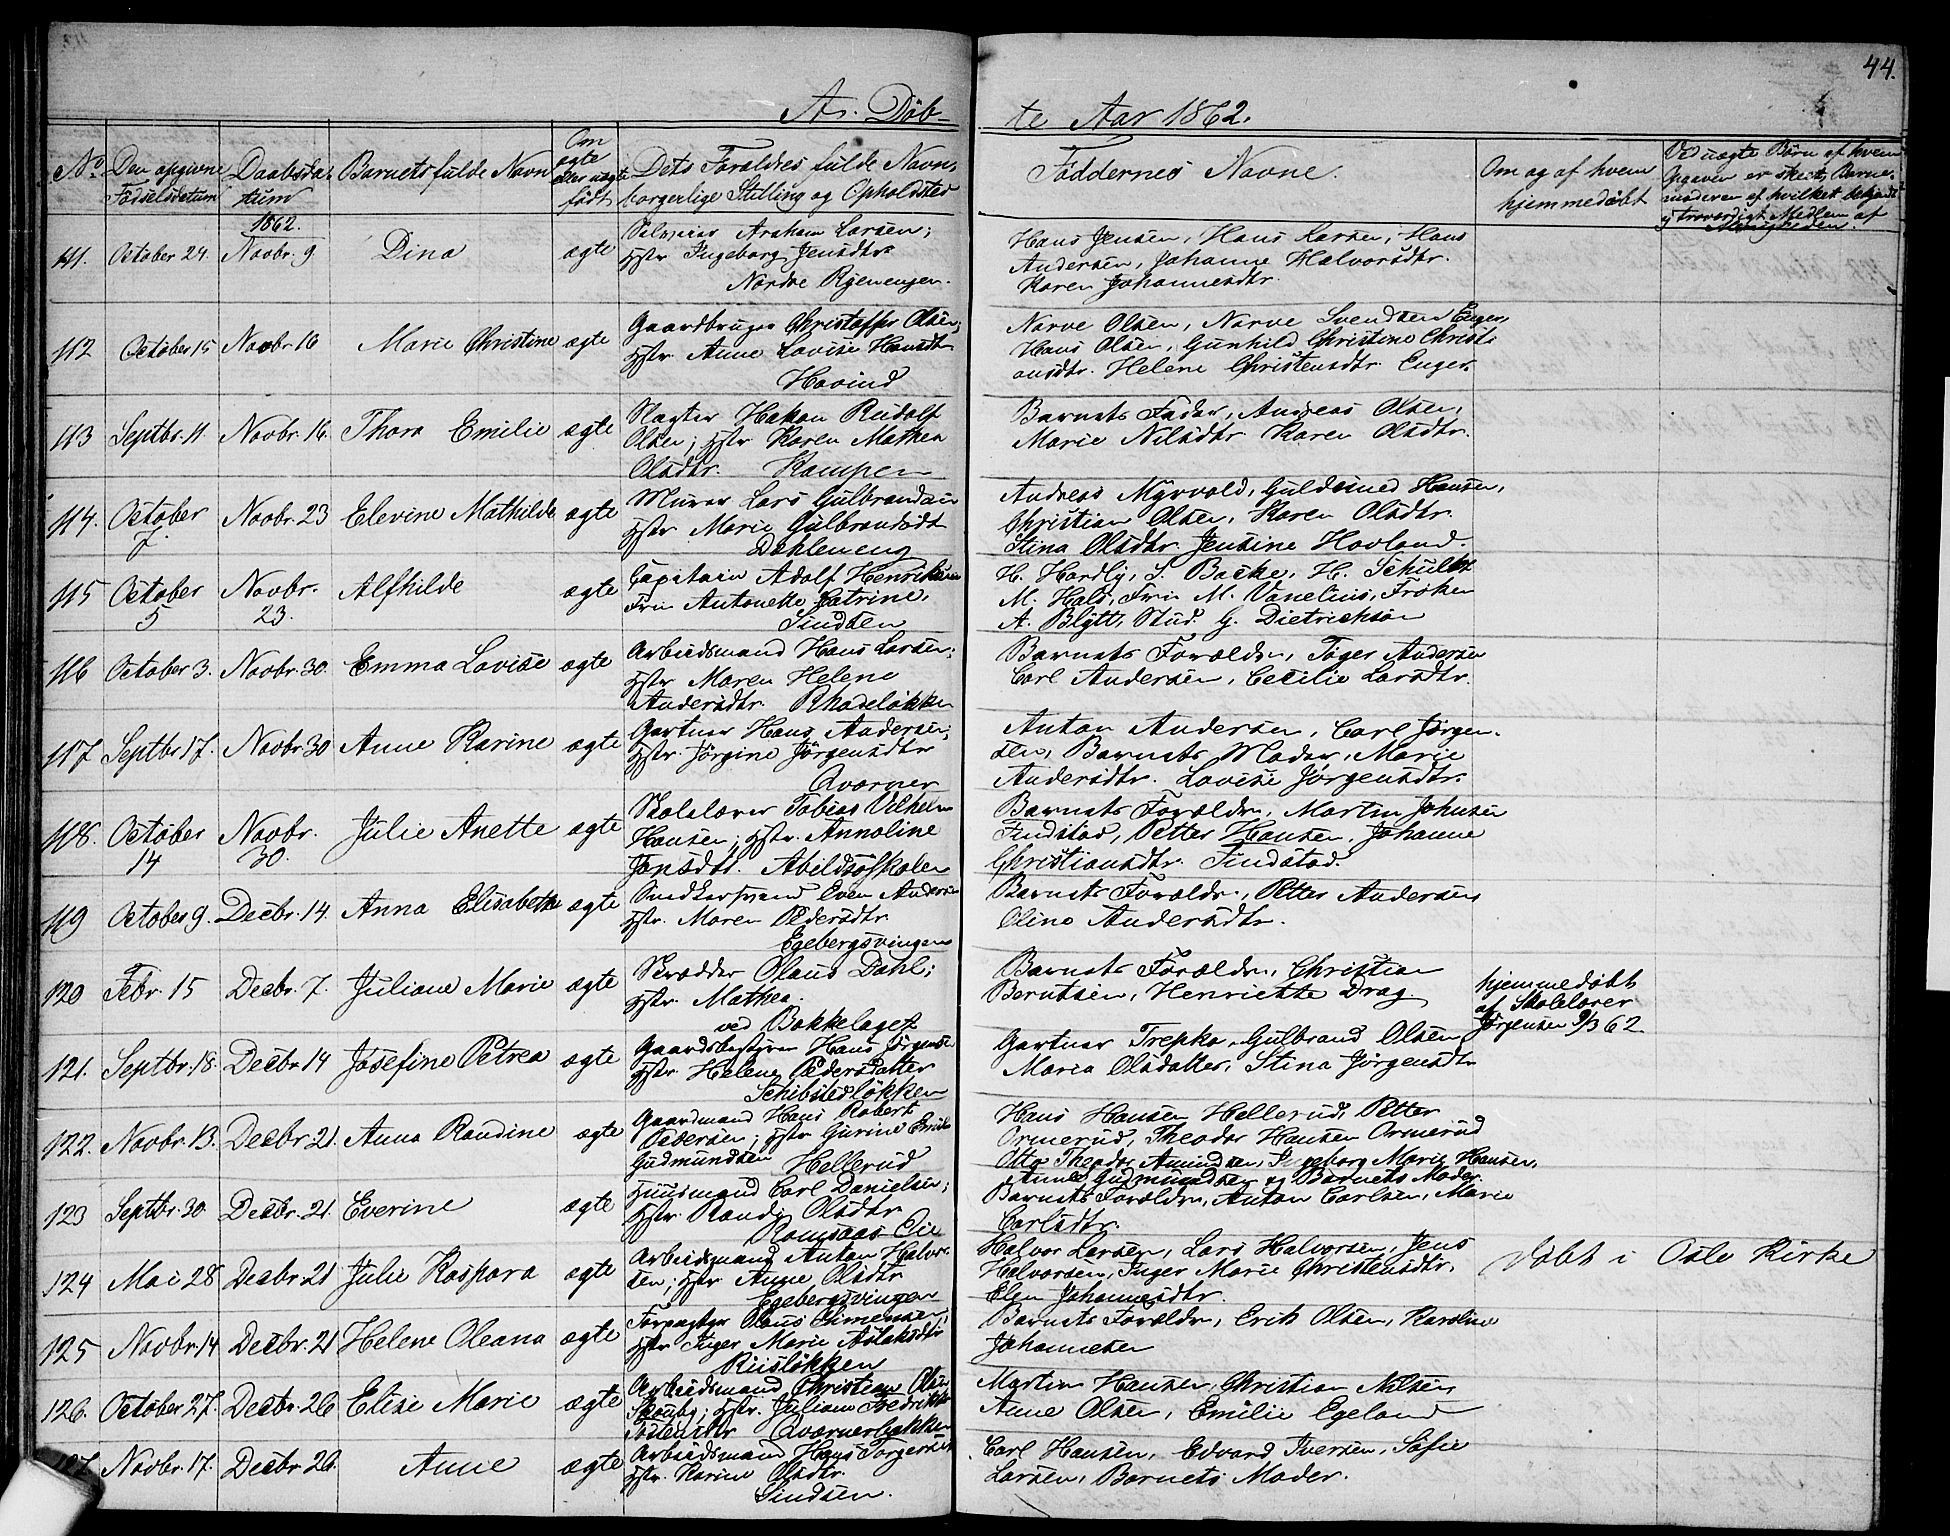 44.
As. Döb-
te Aar 1862.
No.
Den opgivne Fødselsdatum
Daabsdatum
Barnets fulde Navn
Om ægte eller uægte født
Dets Forældres fulde Navn, borgerlige Stilling og Opholdsted
Faddernes Navne.
Om og af hvem hjemmedøbt
Ved uægte Børn af hvem Opgaven er skeet,
1862.
111. October 24. Novbr. 9 Dina ægte
Larsen;
Hstr Ingeborg Jensdtr.
Nordre
Hans Jensen, Hans Larsen, Hans
Andersen, Johanne Halvorsdtr.
Karen Johannesdtr.
112 October 15 Novbr. 16 Marie Christine ægte
Gaardbruger Christoffer Olsen;
Hstr Anne Lovise Hansdtr
Hovind
Narve Olsen, Narve Svendsen Enger,
Hans Olsen, Gunhild Christine Christi
ansdtr. Helene Christensdtr. Enger.
113 Septbr. 11. Novbr. 16. Thora Emilie ægte
Slagter Hakon Rudolf
Olsen; Hstr Karen Mathea
Olsdtr. Kampen
Barnets Fader, Andreas Olsen,
Marie Nilsdtr Karen Olsdtr.
114. October 7. Novbr. 23 Elevine Mathilde ægte
Murer Lars Gulbrandsen
Hstr Marie Gulbrandsdt
Dehleneng
Andreas Myrvold, Guldsmed Hansen,
Christian Olsen, Karen Olsdtr.
Stina Olsdtr. Jensine Hovland.
115 October 5 Novbr. 23. Alfhilde ægte
Capitain Adolf Henriksen
Fru Antonette Catrine,
Sindsen
H. Hardly, S. Backe, H. Schultz
M. Hals, Fru M. Vanelius, Frøken
A. Blytt, Stud. G. Dietrichson
116 October 3. Novbr. 30. Emma Lovise ægte
Arbeidsmand Hans Larsen;
Hstr Maren Helene
Andersdtr. Rhodeløkken
Barnets Forældre, Andersen
Carl Andersen, Cecilie Larsdtr.
117 Septbr 17. Novbr. 30 Anne Karine ægte
Gartner Hans Andersen;
Hstr. Jørgine Jørgensdtr
Qværner
Anton Andersen, Carl Jørgen-
sen, Barnets Moder, Marie
Andersdtr. Lovise Jørgensdtr.
118. October 14 Novbr. 30. Julie Anette ægte
Skolelærer Tobias Vilhelm
Hansen; Hstr. Annoline
Jonsdtr. Abildsøskolen
Barnets Forældre, Martin Johnsen
Findstad, Petter Hansen, Johanne
Christiansdtr. Findstad
119 October 9. Decbr. 14. Anna Elisabeth ægte
Even Andersen
Hstr. Maren Pedersdtr
Egebergsvingen
Barnets Forældre, Petter Andersen
Oline Andersdtr.
120 Febr. 15 Decbr. 7. Juliane Marie ægte
Skrædder Olaus Dahl;
Hstr. Mathea.
ved Bækkelaget
Barnets Forældre, Christian
Berntsen, Henriette Drag
hjemmedøbt
af Skolelærer
Jørgensen 9/3 62
121. Septbr. 18. Decbr. 14 Josefine Petrea ægte
Gaardsbestyrer Hans Jørgensen
Hstr Helene Pedersdatter
Schibstedløkken
Gartner Trepka, Gulbrand Olsen
Maria Olsdatter, Stina Jørgensdtr
122. Novbr. 13. Decbr. 21. Anna Randine ægte
Gaardmand Hans Robert
Pedersen; Hstr Gurine
Gudmundsen Hellerud
Hans Hansen Hellerud, Petter
Ormerud, Theodor Hansen Ormerud
Otto Theodor Amundsen, Ingeborg Marie Hansen,
Anne Gudmundsen og Barnets Moder
123 Septbr. 30. Decbr. 21. Everine ægte
Huusmand Carl Danielsen;
Hstr. Randi Olsdtr
Romsaas Eie
Barnets Forældre, Anton Carlsen, Marie
Carlsdtr.
124 Mai 28 Decbr. 21 Julie Kaspara ægte
Arbeidsmand Anton Halvor-
sen, Hstr Anne Olsdtr
Egebergsvingen
Halvor Larsen, Lars Halvorsen, Jens
Halvorsen, Inger Marie Christensdtr,
Elen Johannesdtr.
Døbt i Oslo Kirke
125 Novbr. 14 Decbr. 21 Helene Oleana ægte
Forpagter Olaus Simensen;
Hstr Inger Marie Aslaksdtr
Riisløkken
Barnets Forældre, Erik Olsen, Karoline
Johannesen
126. October 27. Decbr. 26 Elise Marie ægte
Arbeidsmand Christian Olsen
Skouby; Hstr. Juliane Fredrikke
Qværnerbakken
Martin Hansen, Christian Nilsen,
Anne Olsen, Emilie Egeland
127. Novbr. 17. Decbr. 26. Anne ægte
Arbeidsmand Hans Torgersen
Hstr. Karine Olsdtr.
Sindsen.
Carl Hansen, Edvard Iversen, Sofie
Larsen, Barnets Moder.